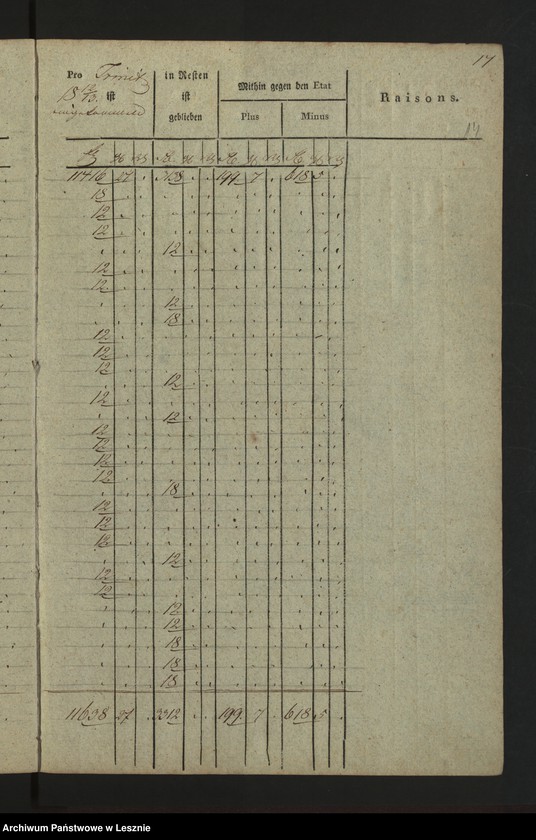 17
Pro Trinit
18 12/13. ist
eingekommen
in Resten
ist
geblieben
Mithin gegen den Etat
Plus
Minus
Raisons.
17
11416 27 . 3138 . . 199. 7 . 618 5 .
18
12
12
12
12
12
12
18
12
12
12
12
12
12
12
12
12
12
18
12
12
12
12
12
12
12
12
18
18
18
11638 27 . 3312 . . 199. 7 . 618 5 .
Archiwum Państwowe w Lesznie